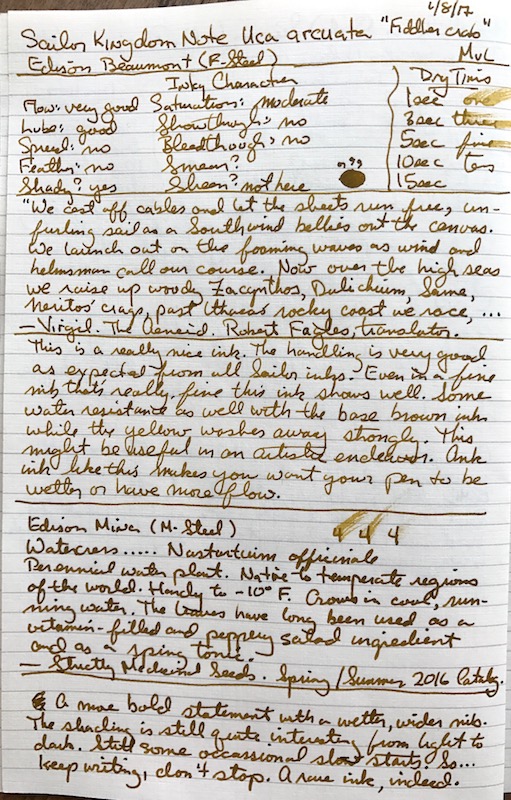 1/8/17
Sailor Kingdom Note Uca arcuata "Fiddler crab"
Edison Beaumont (F-Steel) MvL
Inky Character Dry Times
Flow: very good Saturation: moderate 1sec one
Lube: good Showthrough: no 3sec three
Spread: no Bleedthrough: no 5sec five
Feather: no Smear? 10sec ten
Shady? yes Sheen? not here 15sec
"We cast off cables and let the sheets run free, un-
furling sail as a Southwind bellies out the canvas.
We launch out on the foaming waves as wind and
helmsman call our course. Now over the high seas
we raise up woody Zacynthos, Dulichium, Same,
Neritos' crags, past Ithaca's rocky coast we race, ...
— Virgil. The Aeneid. Robert Fagles, translator.
This is a really nice ink. The handling is very good
as expected from all Sailor inks. Even in a fine
nib that's really fine this ink shows well. Some
water resistance as well with the base brown ink
while the yellow washes away strongly. This
might be useful in an artistic endeavor. Ank
ink like this makes you want your pen to be
wetter or have more flow.
Edison Mina (M-Steel) 4 4 4
Watercress..... Nasturtium officinale
Perennial water plant. Native to temperate regions
of the world. Hardy to -10° F. Grows in cool, run-
ning water. The leaves have long been used as a
vitamin-filled and peppery salad ingredient
and as a spring tonic."
— Strictly Medicinal Seeds. Spring/Summer 2016 Catalog.
A more bold statement with a wetter, wider nib.
The shading is still quite interesting from light to
dark. Still some occassional slow starts. So...
keep writing, don't stop. A rare ink, indeed.